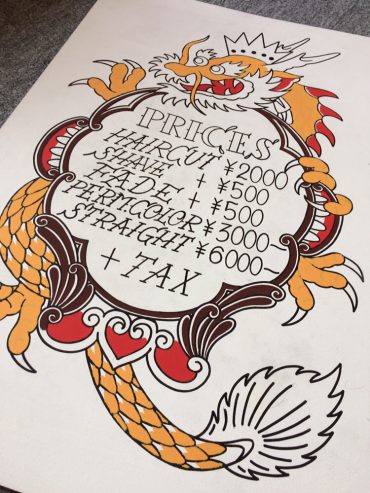 PRICES
HAIRCUT ¥2000
SHAVE + ¥500
FADE + ¥500
PERM.COLOR ¥3000~
STRAIGHT ¥6000~
+ TAX